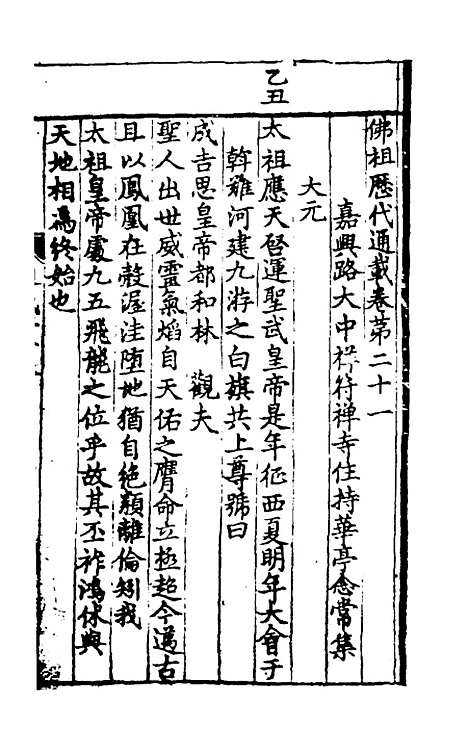 佛祖歷代通載卷第二十一
嘉興路大中祥符禅寺住持華亭念常集
大元
乙丑
太祖應天啓運聖武皇帝是年征西夏明年大會于
斡難河建九斿之白旗共上尊號曰
成吉思皇帝都和林 觀夫
聖人出世威靈氣焰自天佑之膺命立極超今邁古
且以鳳凰在㲉渥洼墮地猶自絶類離倫矧我
太祖皇帝處九五飛龍之位乎故其丕祚鴻休與
天地相爲終始也